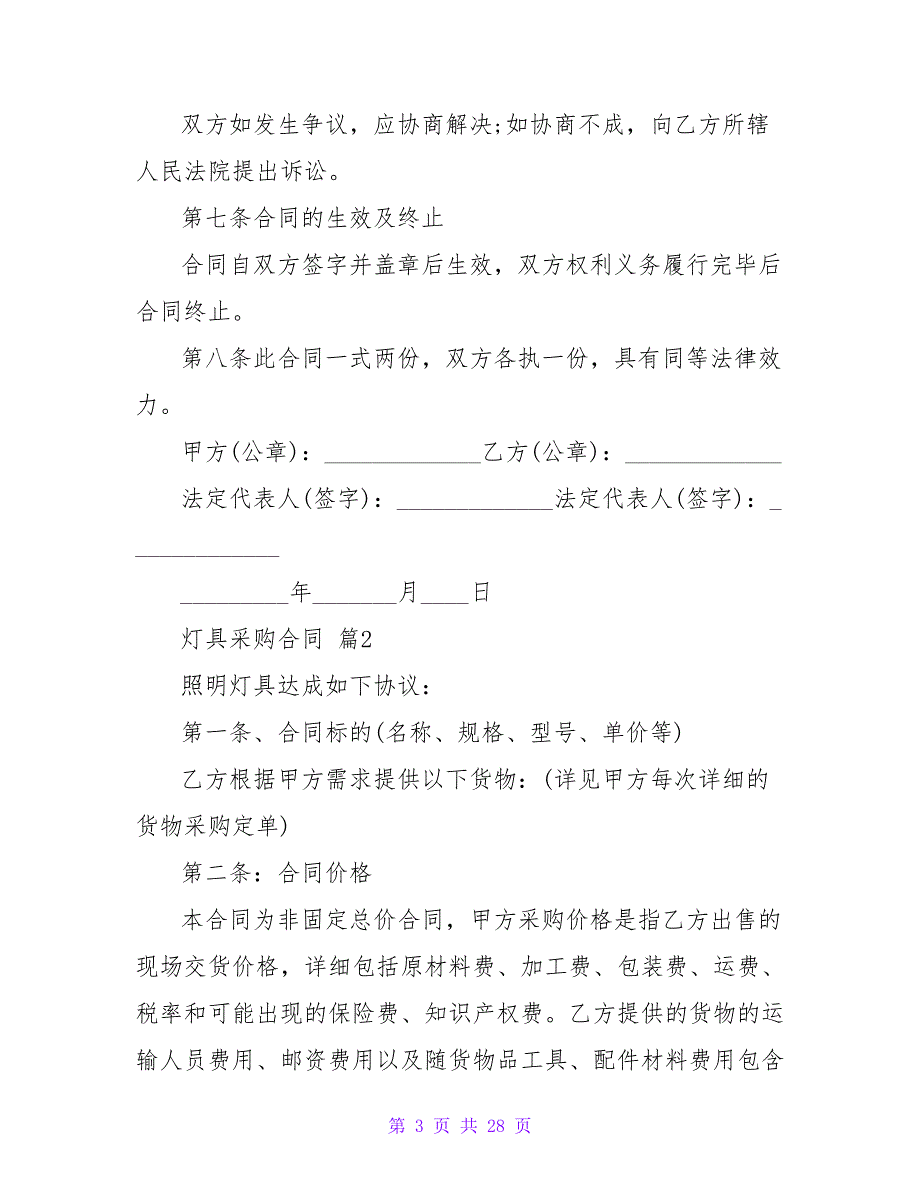 双方如发生争议，应协商解决;如协商不成，向乙方所辖
人民法院提出诉讼。
第七条合同的生效及终止
合同自双方签字并盖章后生效，双方权利义务履行完毕后
合同终止。
第八条此合同一式两份，双方各执一份，具有同等法律效
力。
甲方(公章)：_____________乙方(公章)：_____________
法定代表人(签字)：_____________法定代表人(签字)：_
____________
_________年_______月____日
灯具采购合同 篇2
照明灯具达成如下协议：
第一条、合同标的(名称、规格、型号、单价等)
乙方根据甲方需求提供以下货物：(详见甲方每次详细的
货物采购定单)
第二条：合同价格
本合同为非固定总价合同，甲方采购价格是指乙方出售的
现场交货价格，详细包括原材料费、加工费、包装费、运费、
税率和可能出现的保险费、知识产权费。乙方提供的货物的运
输人员费用、邮资费用以及随货物品工具、配件材料费用包含
第 3 页 共 28 页